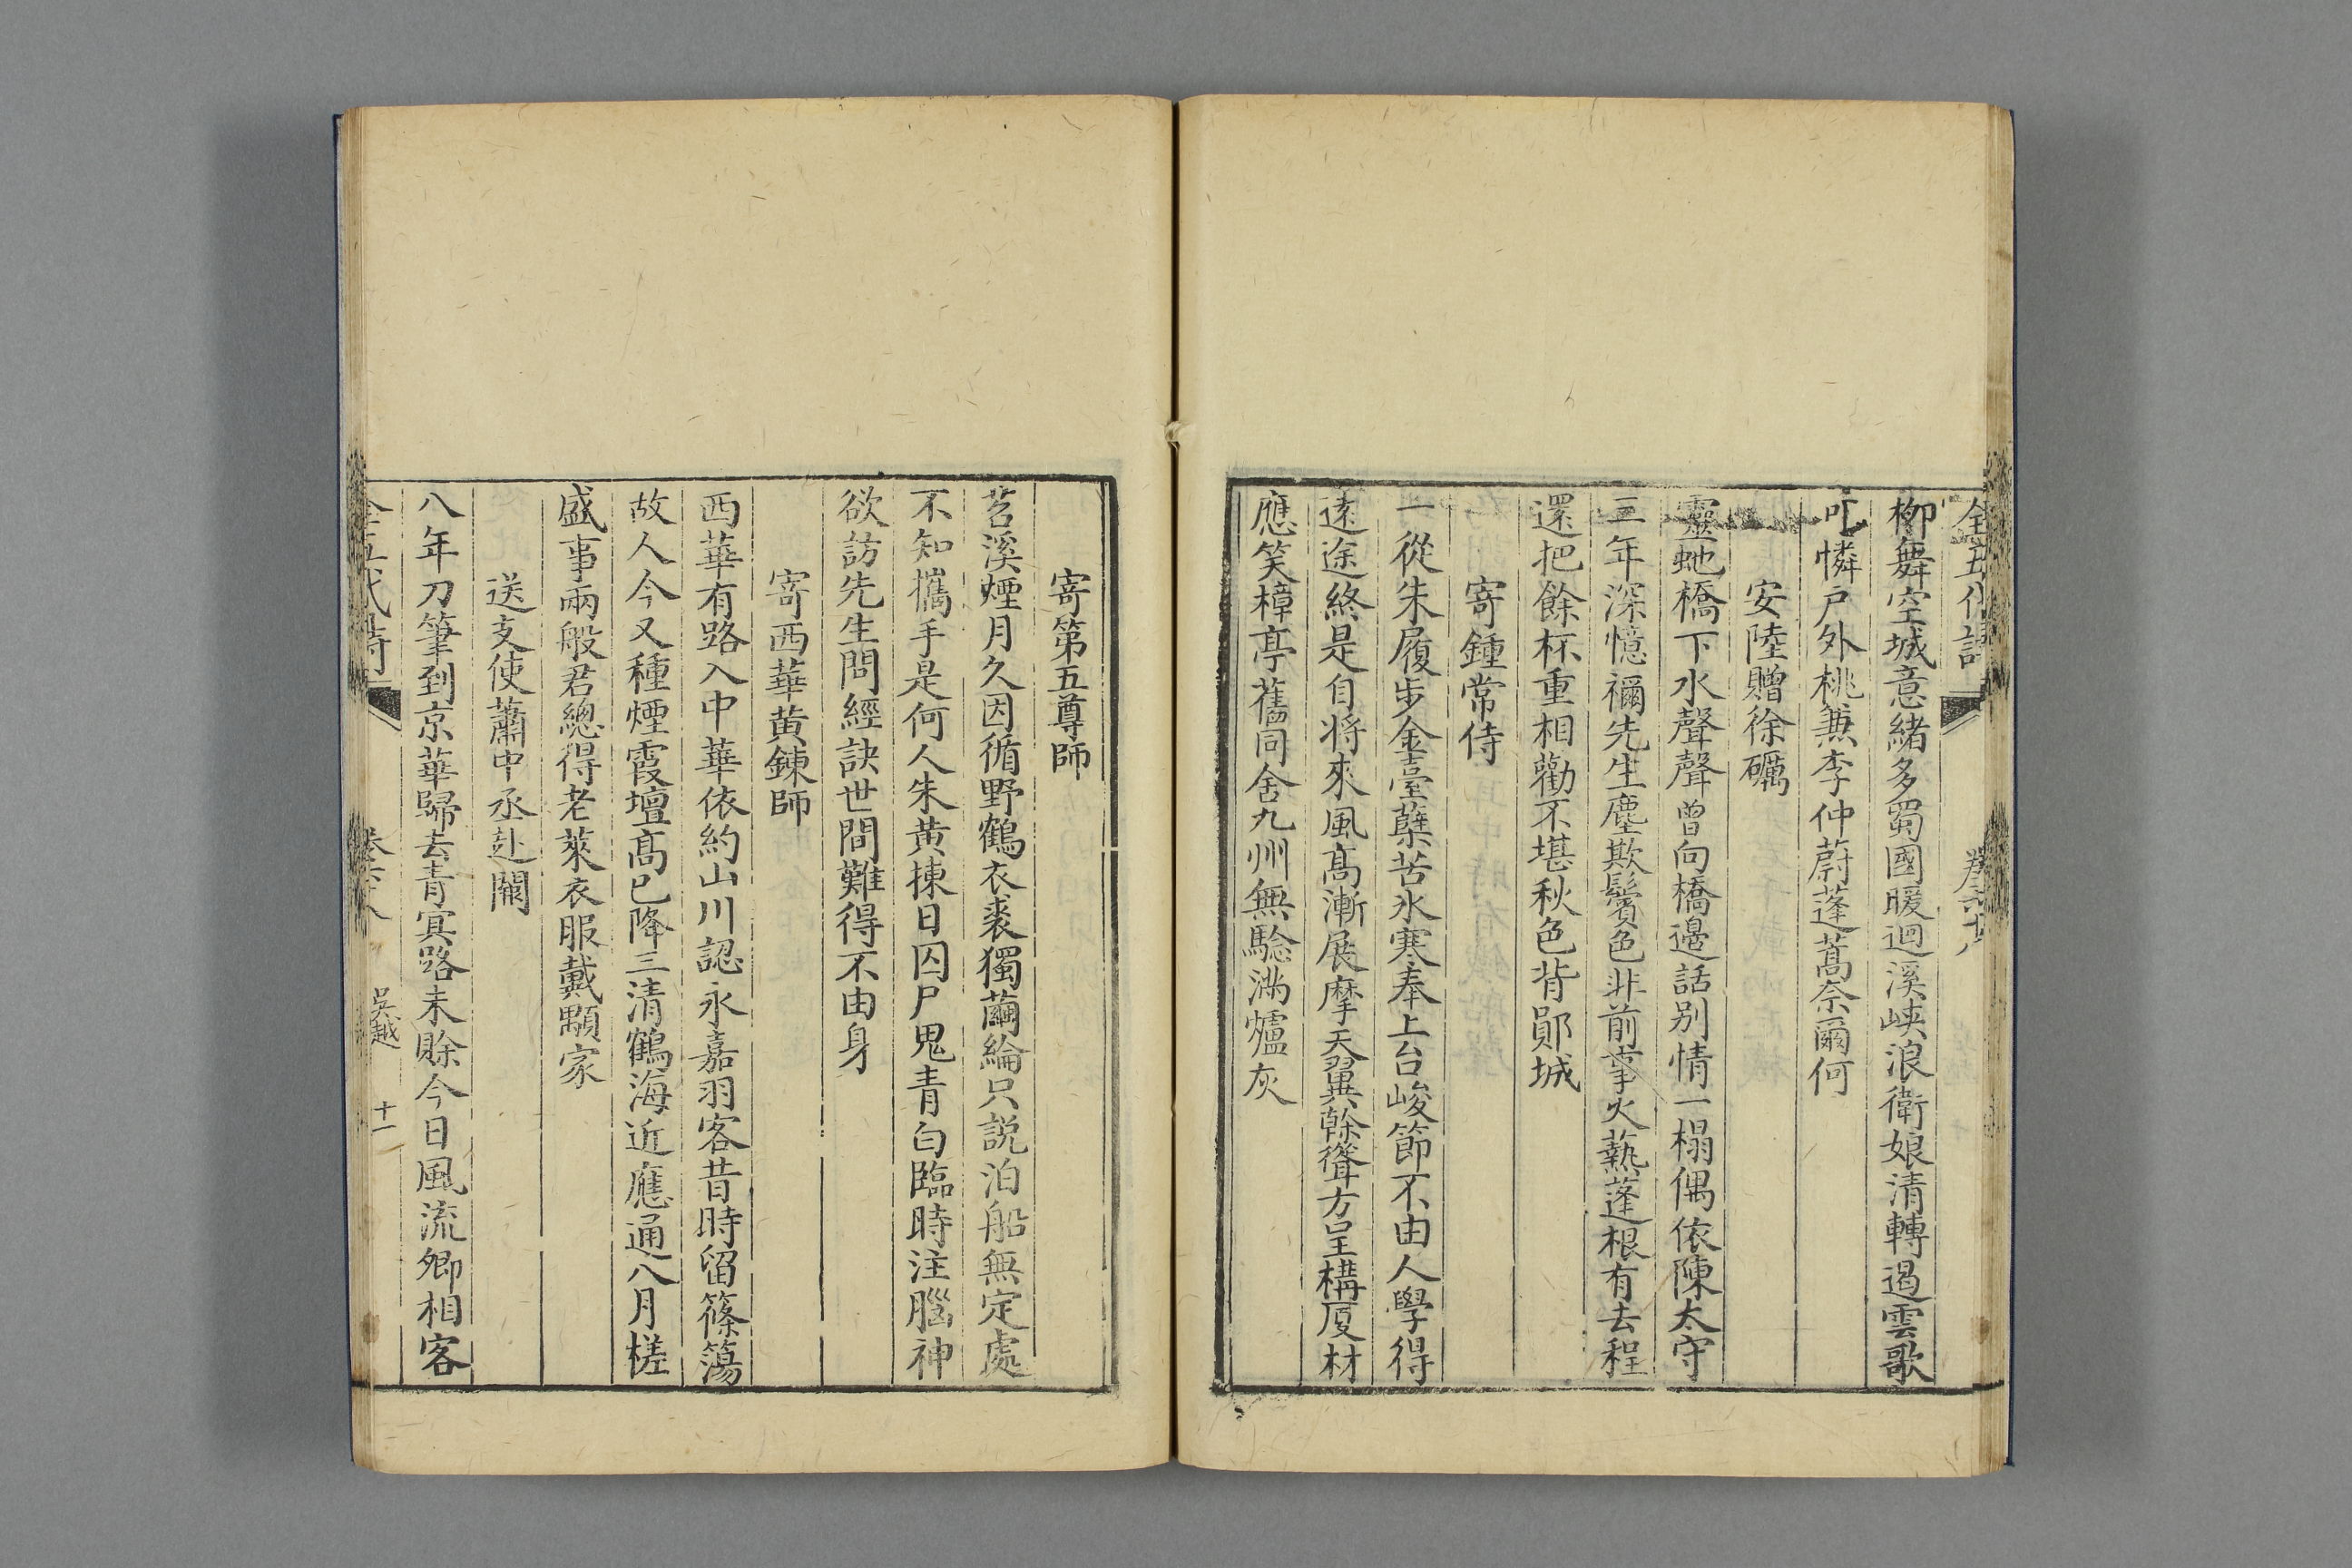 全五代詩 卷六十八
柳舞空城意緒多蜀國暖迴溪峽浪衛娘清轉遏雲歌
可憐戶外桃兼李仲蔚蓬蒿奈爾何
安陸贈徐礪
靈虵橋下水聲聲曾向橋邊話别情一榻偶依陳太守
三年深憶禰先生塵欺鬢色非前事火爇蓬根有去程
還把餘杯重相勸不堪秋色背鄖城
寄鍾常侍
一從朱履步金臺蘖苦氷寒奉上台峻節不由人學得
遠途終是自將來風高漸展摩天翼榦聳方呈構厦材
應笑樟亭舊同舍九州無驗滿爐灰
寄第五尊師
苕溪煙月久因循野鶴衣裘獨繭綸只説泊船無定處
不知攜手是何人朱黄揀日囚尸鬼青白臨時注腦神
欲訪先生問經訣世間難得不由身
寄西華黄錬師
西華有路入中華依約山川認永嘉羽客昔時留篠簜
故人今又種煙霞壇高已降三清鶴海近應通八月槎
盛事兩般君總得老萊衣服戴顒家
送支使蕭中丞赴闕
八年刀筆到京華歸去青冥路未賒今日風流卿相客
全五代詩 卷六十八 吳越 十一